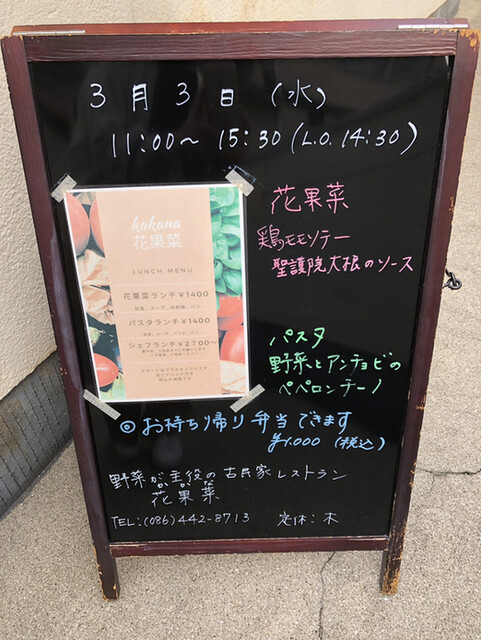 3月3日(水)
11:00~15:30(L.O.14:30)
kakana
花果菜
LUNCH MENU
花果菜ランチ¥1400
パスタランチ¥1400
シェフランチ¥2700~
花果菜
鶏モモソテー
聖護院大根のソース
パスタ
野菜とアンチョビの
ペペロンチーノ
◎お持ち帰り弁当できます
¥1,000(税込)
野菜が主役の古民家レストラン
かかな
花果菜
TEL:(086)442-8713 定休:木